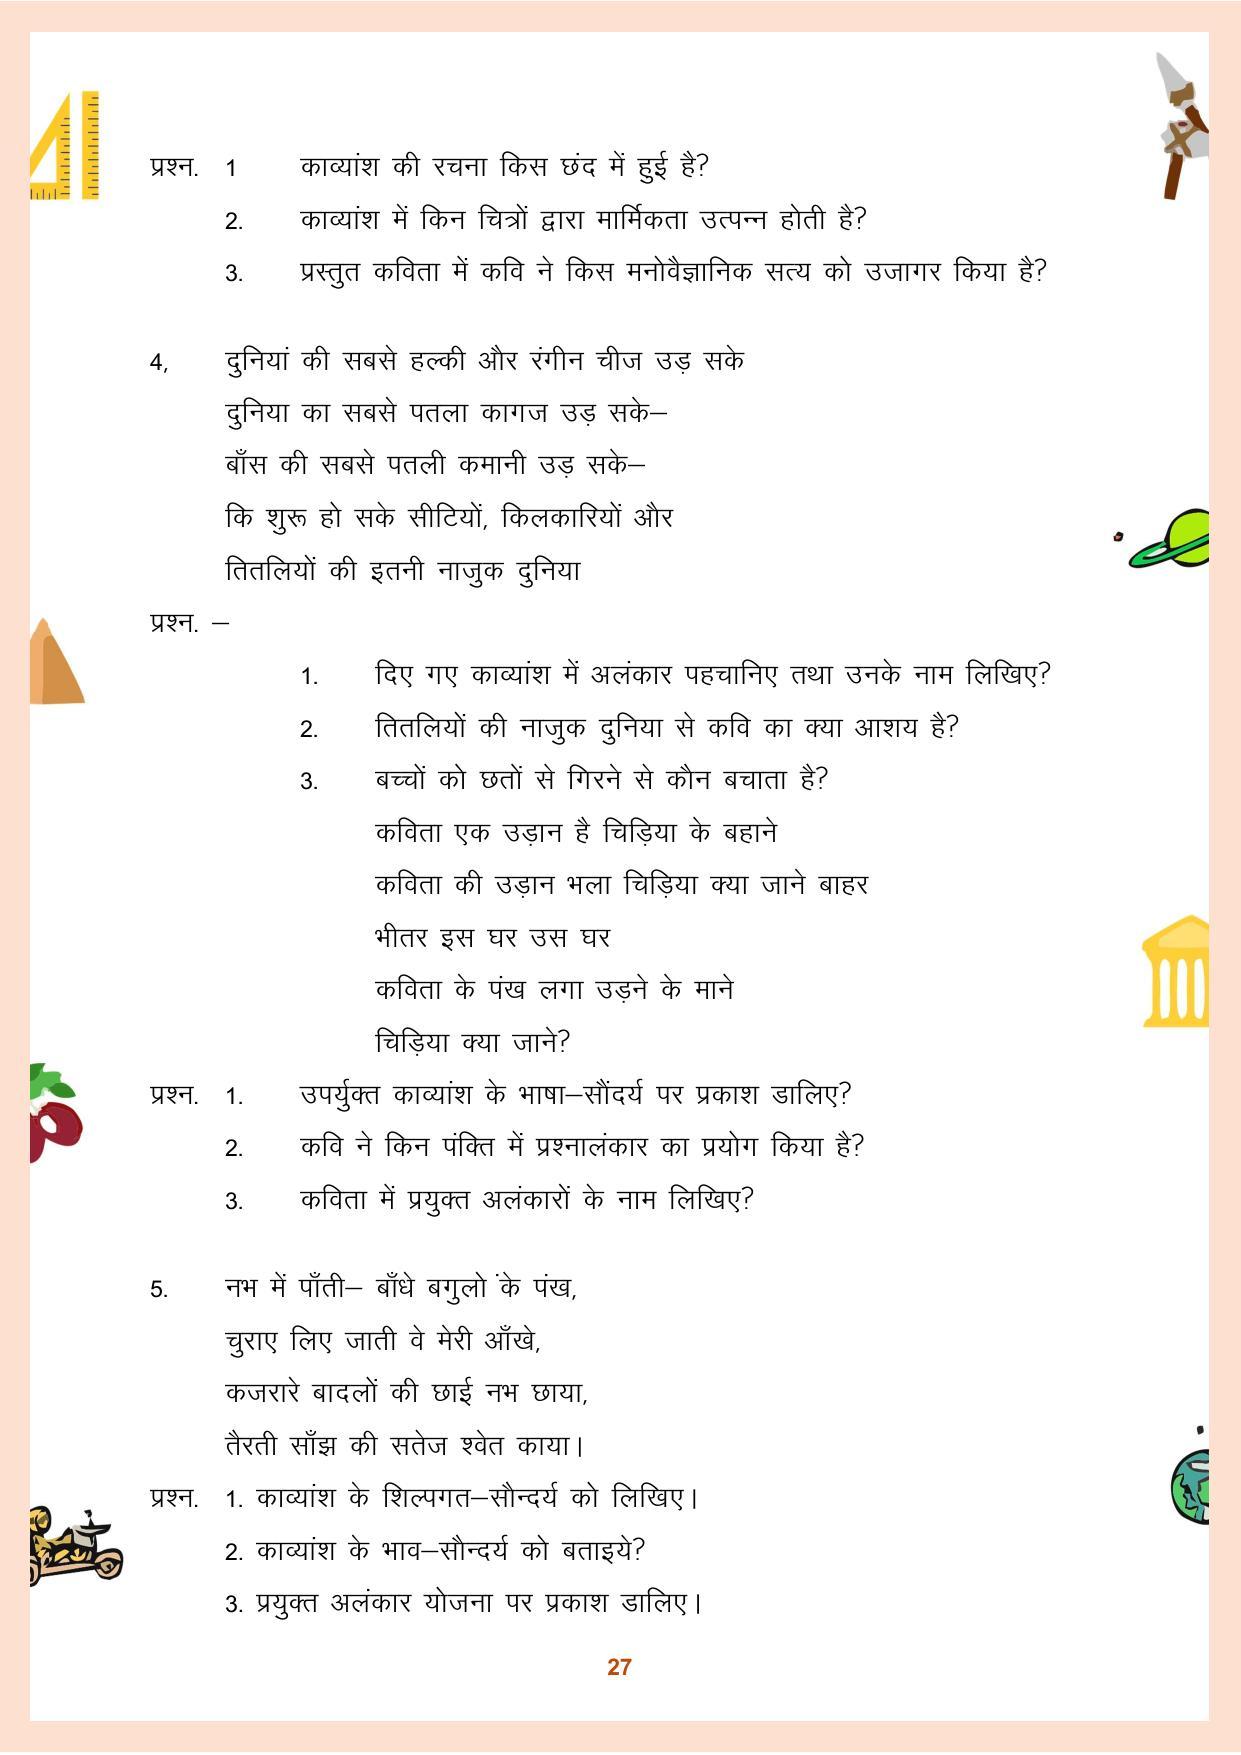 प्रश्न. 1 काव्यांश की रचना किस छंद में हुई है?
2. काव्यांश में किन चित्रों द्वारा मार्मिकता उत्पन्न होती है?
3. प्रस्तुत कविता में कवि ने किस मनोवैज्ञानिक सत्य को उजागर किया है?
4, दुनियां की सबसे हल्की और रंगीन चीज उड़ सके
दुनिया का सबसे पतला कागज उड़ सके–
बाँस की सबसे पतली कमानी उड़ सके–
कि शुरू हो सके सीटियों, किलकारियों और
तितलियों की इतनी नाजुक दुनिया
प्रश्न. –
1. दिए गए काव्यांश में अलंकार पहचानिए तथा उनके नाम लिखिए?
2. तितलियों की नाजुक दुनिया से कवि का क्या आशय है?
3. बच्चों को छतों से गिरने से कौन बचाता है?
कविता एक उड़ान है चिड़िया के बहाने
कविता की उड़ान भला चिड़िया क्या जाने बाहर
भीतर इस घर उस घर
कविता के पंख लगा उड़ने के माने
चिड़िया क्या जाने?
प्रश्न. 1. उपर्युक्त काव्यांश के भाषा–सौंदर्य पर प्रकाश डालिए?
2. कवि ने किन पंक्ति में प्रश्नालंकार का प्रयोग किया है?
3. कविता में प्रयुक्त अलंकारों के नाम लिखिए?
5. नभ में पाँती– बाँधे बगुलो ंके पंख,
चुराए लिए जाती वे मेरी आँखे,
कजरारे बादलों की छाई नभ छाया,
तैरती साँझ की सतेज श्वेत काया।
प्रश्न. 1. काव्यांश के शिल्पगत–सौन्दर्य को लिखिए।
2. काव्यांश के भाव–सौन्दर्य को बताइये?
3. प्रयुक्त अलंकार योजना पर प्रकाश डालिए।
27